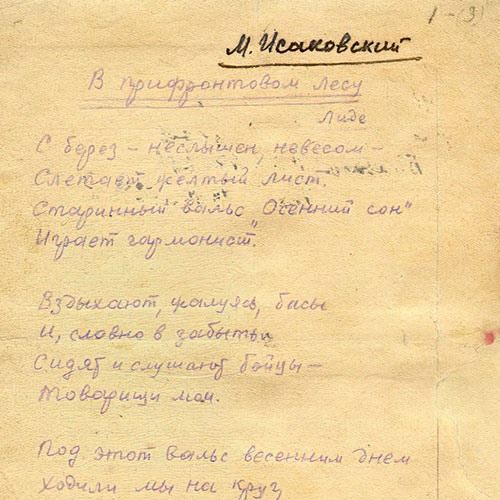 1-(3)
М. Исаковский
В прифронтовом лесу
Лиде
С берез – неслышен, невесом –
Слетает желтый лист.
Старинный вальс „Осенний сон"
Играет гармонист.
Вздыхают, жалуясь, басы
И, словно в забытьи
Сидят и слушают бойцы –
Товарищи мои.
Под этот вальс весенним днем
Ходили мы на круг,